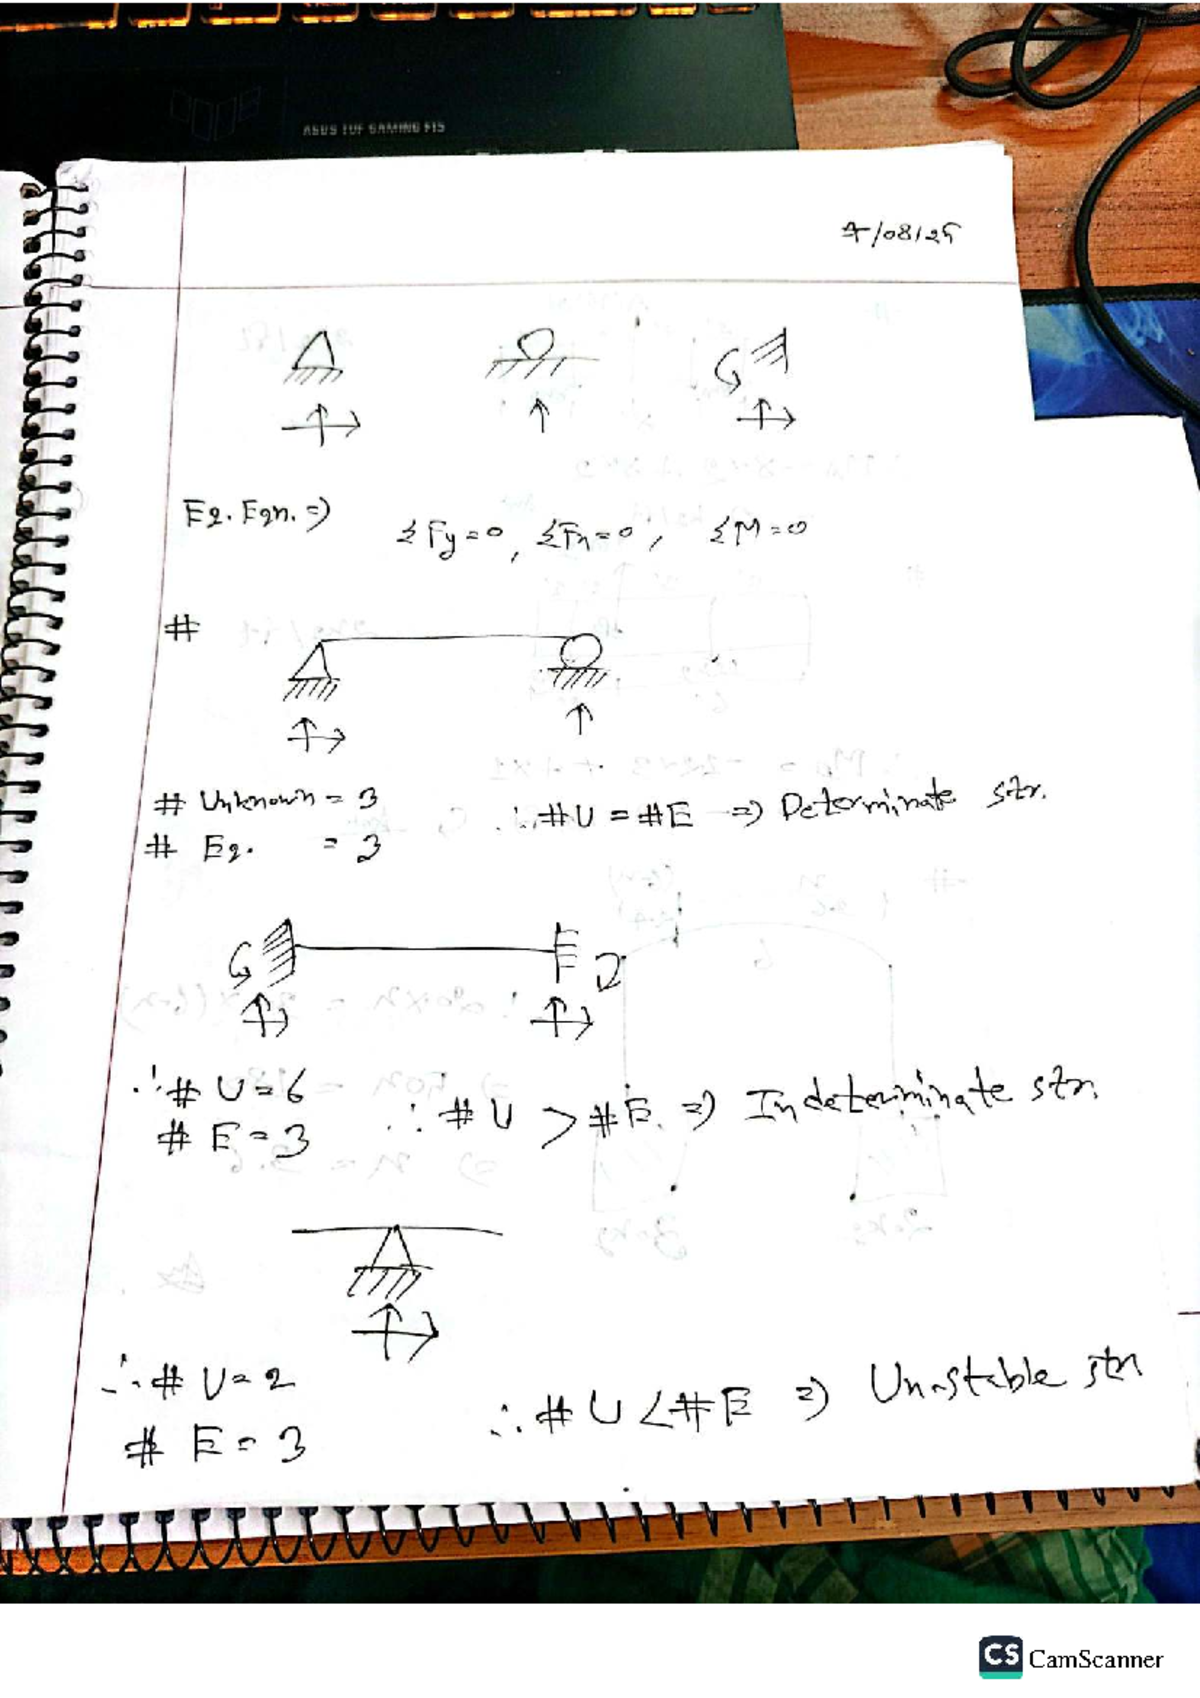 ASUS TUF GAMING F15
/08/25
Eq. Eqn. =>
ΣFy=0, ΣFx=0, ΣM=0
#
# Unknown = 3
∴ #U = #E => Determinate str.
# Eq. = 3
∴ # U = 6
∴ # U > # E. => Indeterminate str.
# E = 3
∴ # U = 2
∴ # U < # E => Unstable str
# E = 3
CS CamScanner